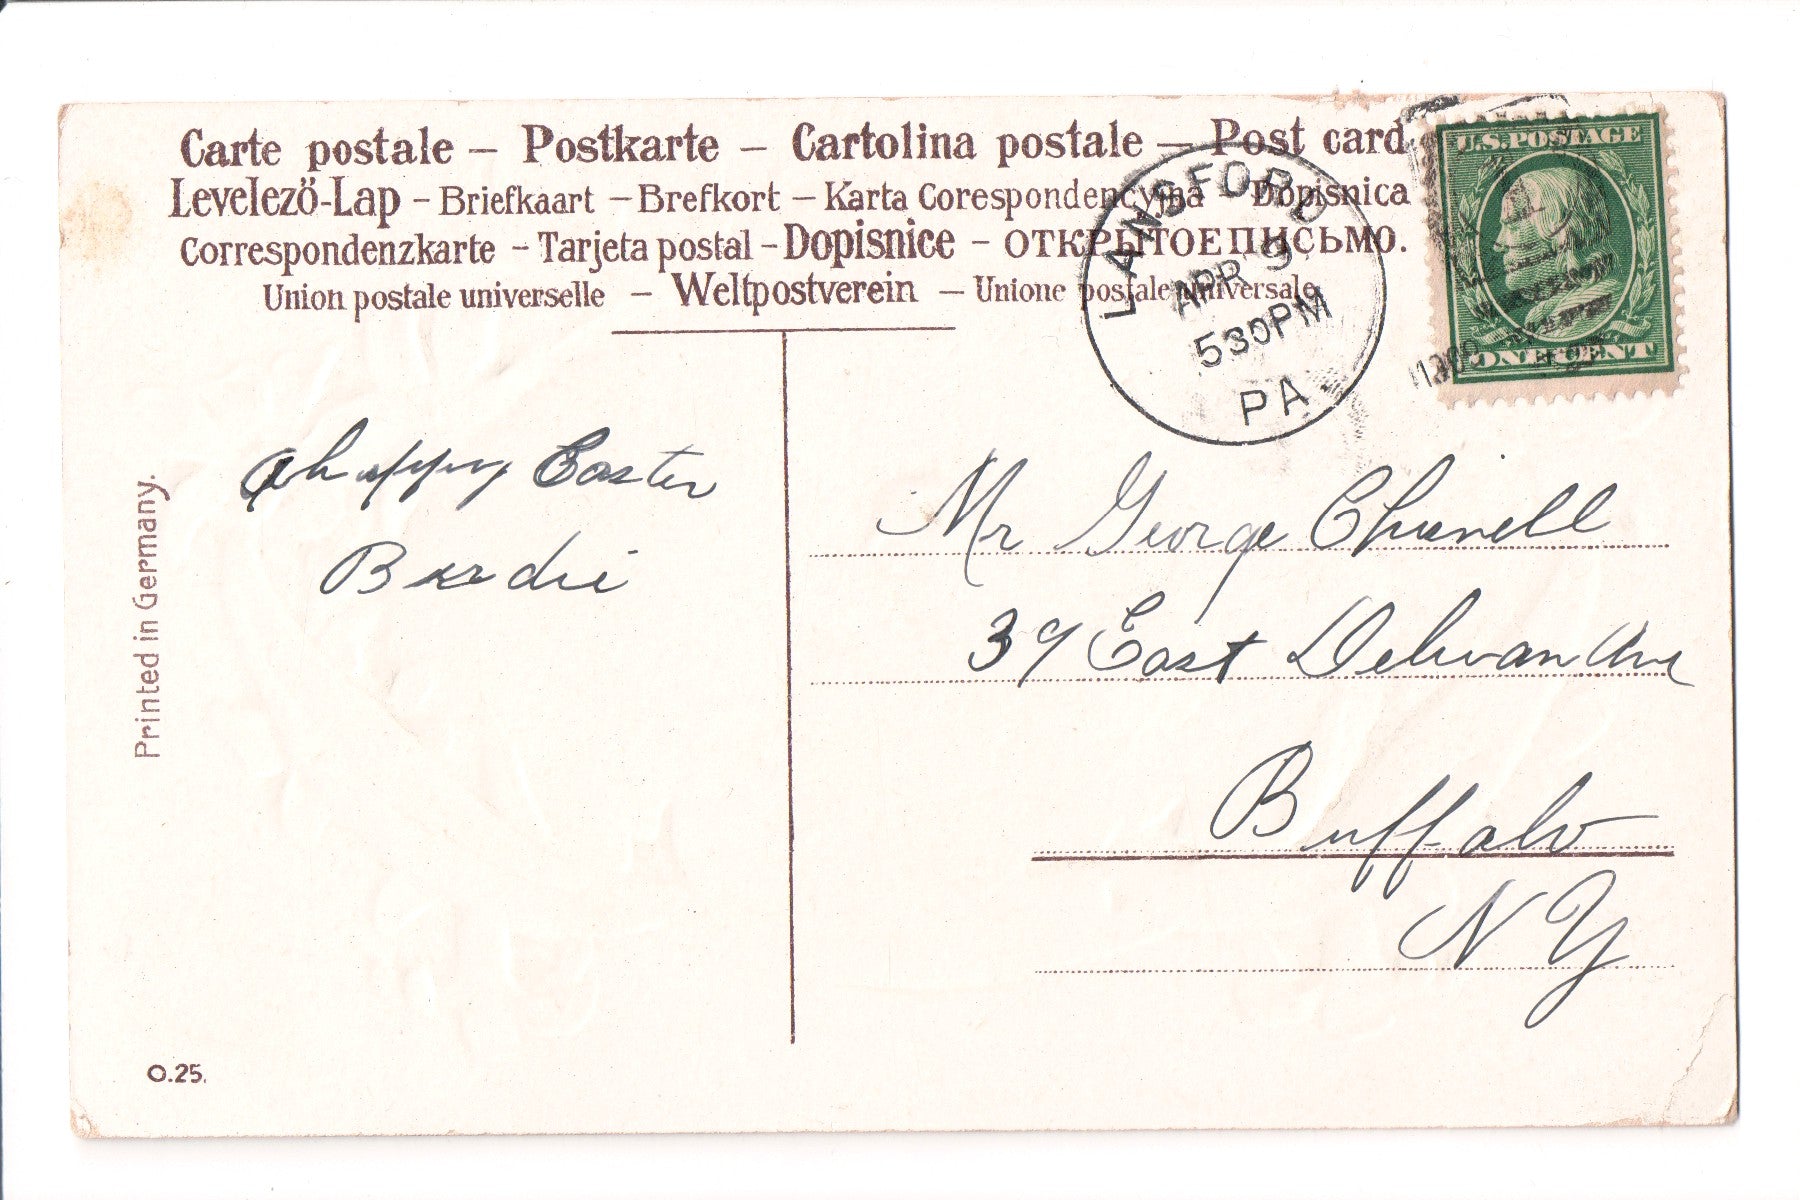 Carte postale – Postkarte – Cartolina postale – Post card
Levelező-Lap – Briefkaart – Brefkort – Karta Corespondencyjna – Dopisnica
Correspondenzkarte – Tarjeta postal – Dopisnice – ОТКРЫТОЕПИСЬМО.
Union postale universelle – Weltpostverein – Unione postale universale
U.S. POSTAGE
ONE CENT
LANSFORD
APR 9
530PM
PA.
1909
A happy Easter
Berdie
Mr George
39 East Delwan Ave
Buffalo
N Y
Printed in Germany.
O.25.